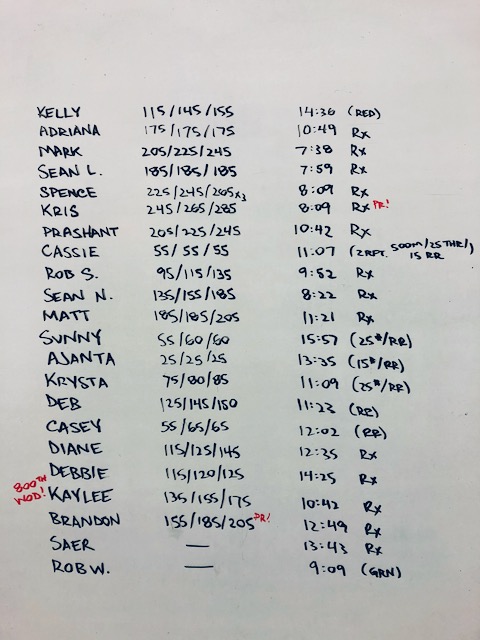 KELLY 115/145/155 14:36 (RED)
ADRIANA 175/175/175 10:49 Rx
MARK 205/225/245 7:38 Rx
SEAN L. 185/185/185 7:59 Rx
SPENCE 225/245/265x3 8:09 Rx
KRIS 245/265/285 8:09 Rx PR!
PRASHANT 205/225/245 10:42 Rx
CASSIE 55/55/55 11:07 (2RFT. 500m/25THR/)
15 RR
ROB S. 95/115/135 9:52 Rx
SEAN N. 135/155/185 8:22 Rx
MATT 185/185/205 11:21 Rx
SUNNY 55/60/60 15:57 (25#/RR)
AJANTA 25/25/25 13:35 (15#/RR)
KRYSTA 75/80/85 11:09 (35#/RR)
DEB 125/145/150 11:23 (RR)
CASEY 55/65/65 12:02 (RR)
DIANE 115/125/145 12:35 Rx
DEBBIE 115/120/125 14:25 Rx
800TH WOD! KAYLEE 135/155/175 10:42 Rx
BRANDON 155/185/205 PR! 12:49 Rx
SAER — 13:43 Rx
ROB W. — 9:09 (GRN)